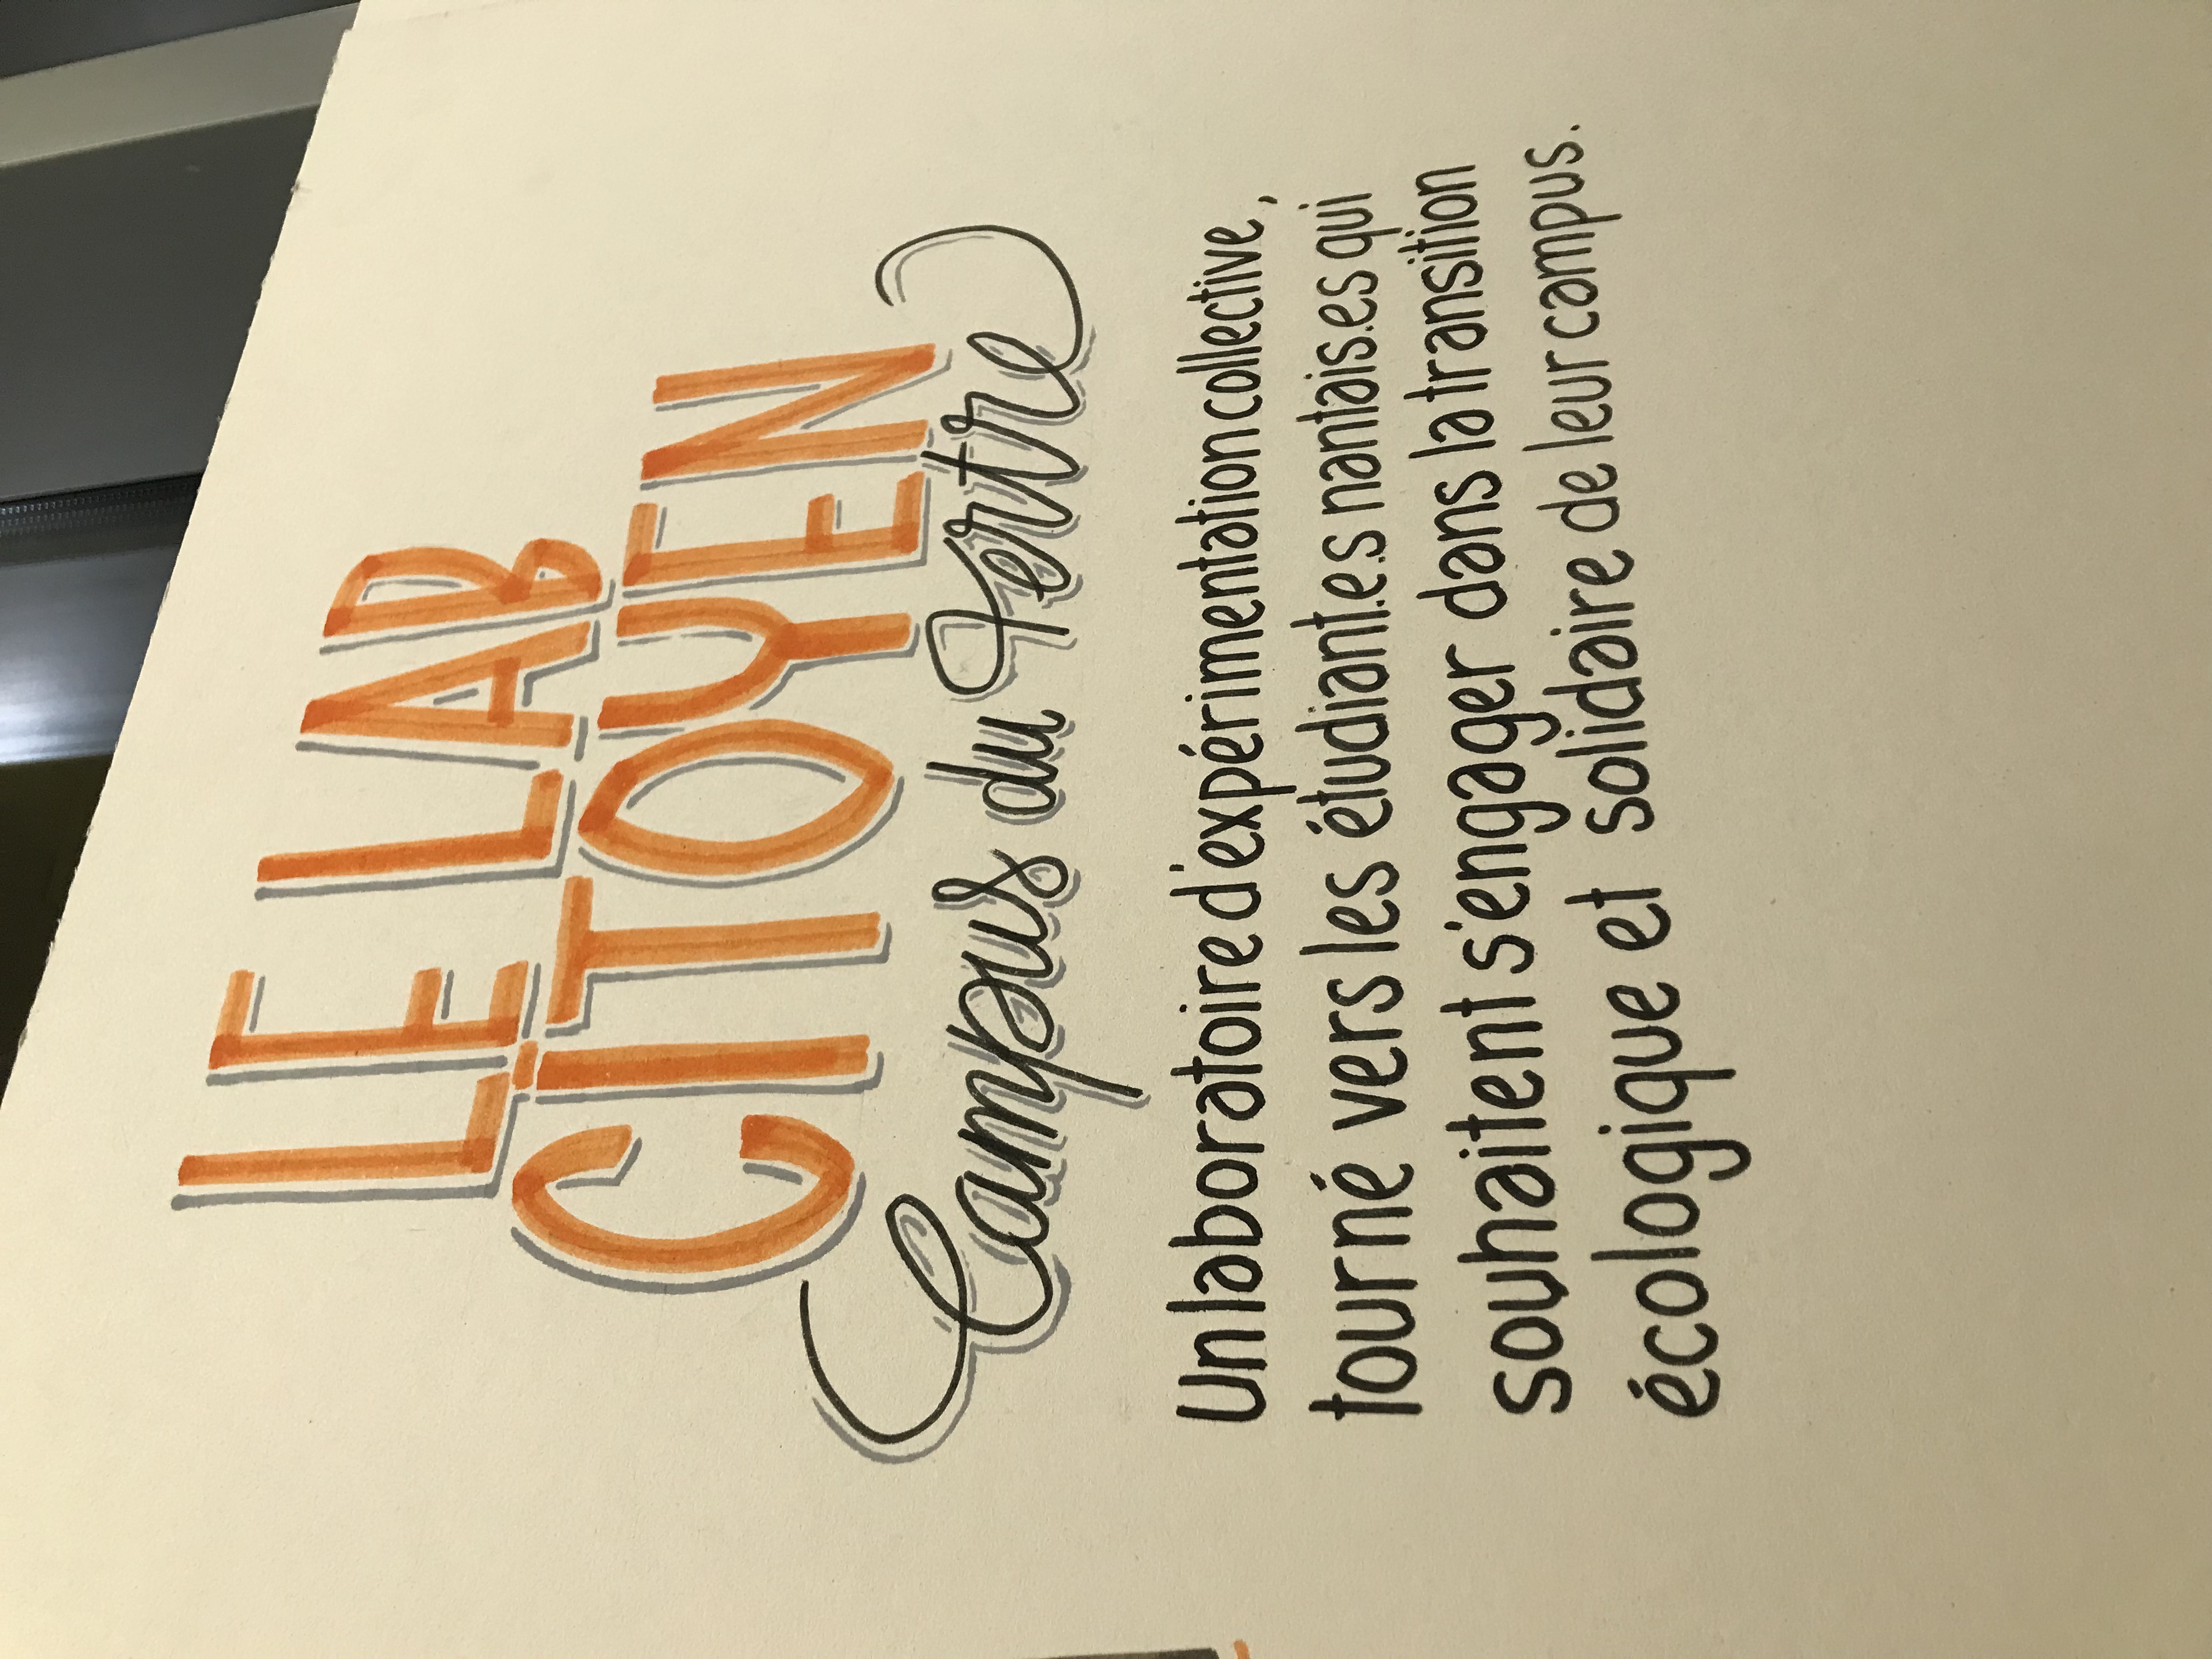 LE LAB
CITOYEN
Campus du Tertre
Un laboratoire d'expérimentation collective,
tourné vers les étudiant.e.s nantais.es qui
souhaitent s'engager dans la transition
écologique et solidaire de leur campus.